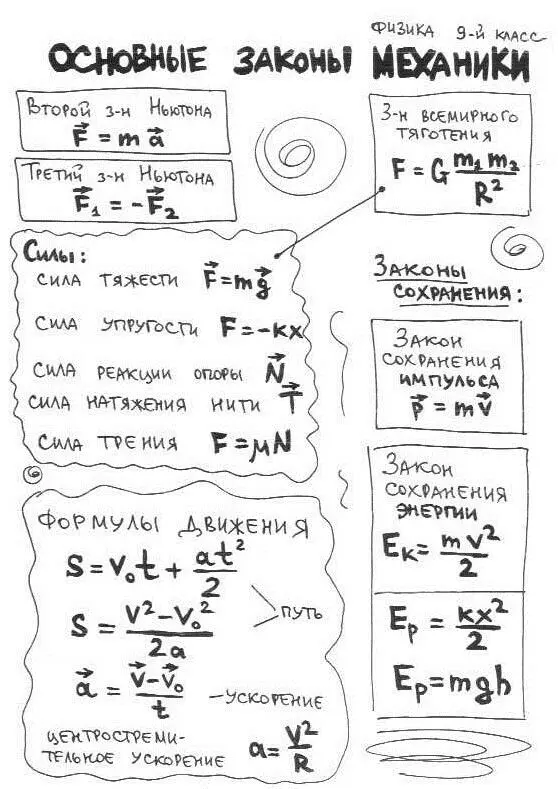 ФИЗИКА 9-Й КЛАСС
ОСНОВНЫЕ ЗАКОНЫ МЕХАНИКИ
ВТОРОЙ З-Н НЬЮТОНА
F⃗ = m a⃗
ТРЕТИЙ З-Н НЬЮТОНА
F⃗₁ = -F⃗₂
З-Н ВСЕМИРНОГО
ТЯГОТЕНИЯ
F = G m₁ m₂ / R²
СИЛЫ:
СИЛА ТЯЖЕСТИ F⃗ = mg⃗
СИЛА УПРУГОСТИ F = -кх
СИЛА РЕАКЦИИ ОПОРЫ N⃗
СИЛА НАТЯЖЕНИЯ НИТИ T⃗
СИЛА ТРЕНИЯ F = μN
ЗАКОНЫ
СОХРАНЕНИЯ:
ЗАКОН
СОХРАНЕНИЯ
ИМПУЛЬСА
p⃗ = mv⃗
ЗАКОН
СОХРАНЕНИЯ
ЭНЕРГИИ
Eк = mv²/2
Ep = kx²/2
Ep = mgh
ФОРМУЛЫ ДВИЖЕНИЯ
S = V₀t + at²/2
S = V² - V₀² / 2a
ПУТЬ
a⃗ = V⃗ - V⃗₀ / t
- УСКОРЕНИЕ
ЦЕНТРОСТРЕМИ-
ТЕЛЬНОЕ УСКОРЕНИЕ a = V²/R